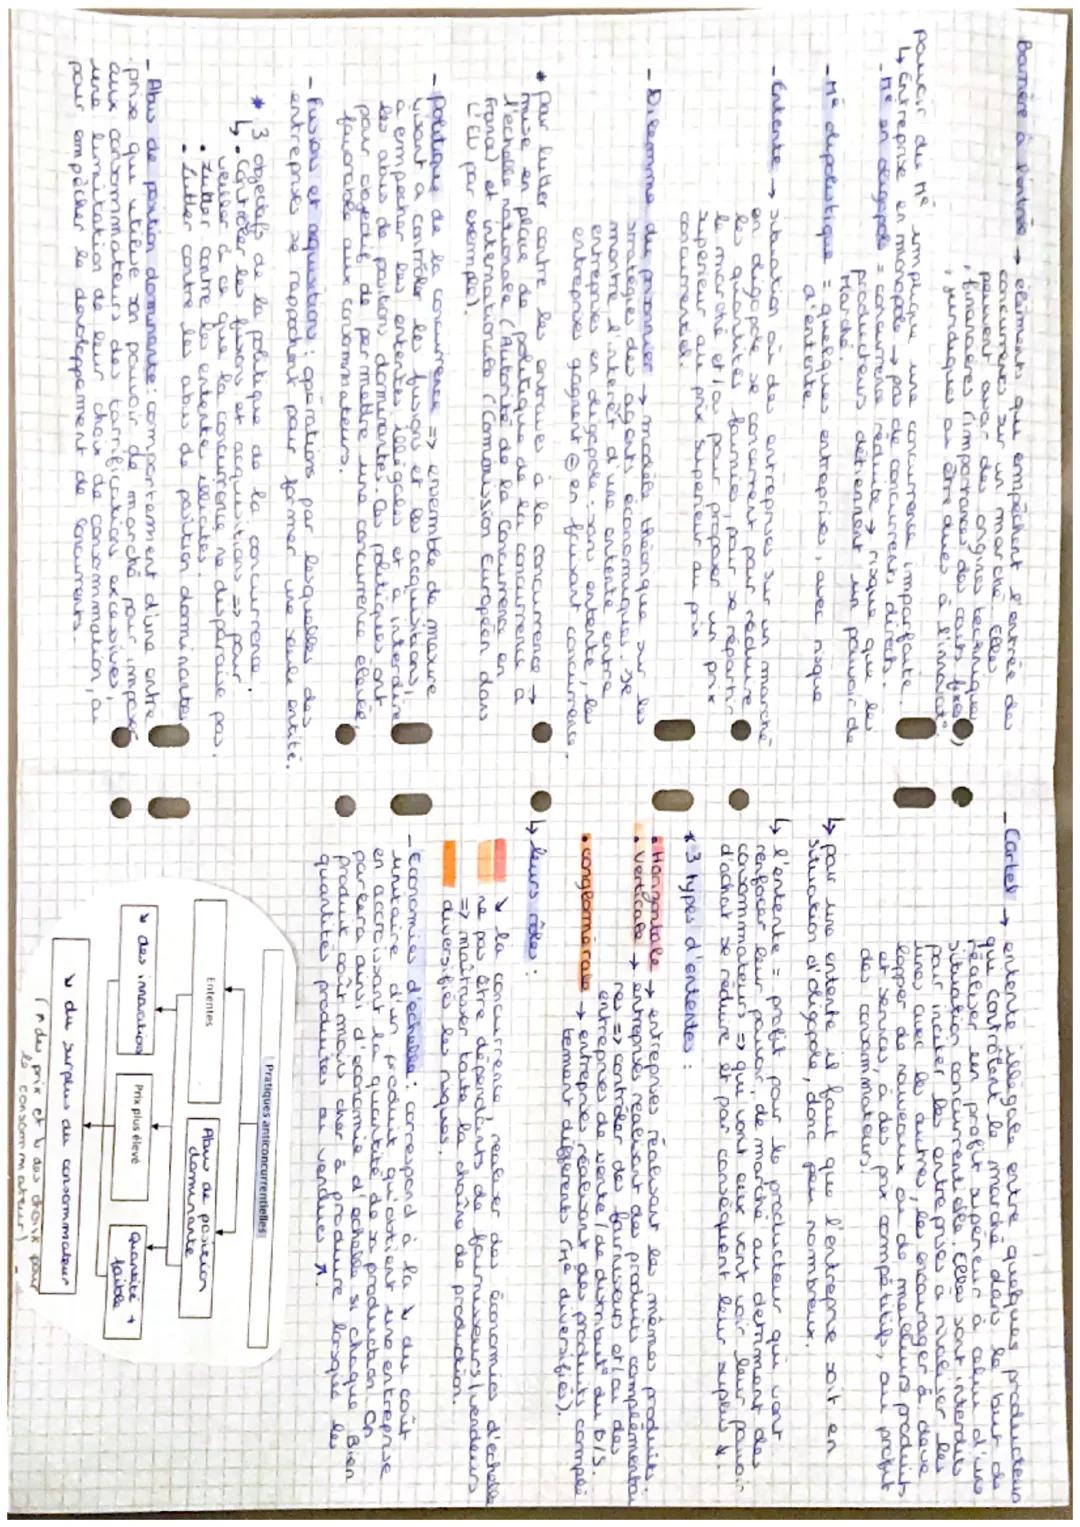 Barrière à l'entrée → éléments qui empêchent l'entrée des
concurrents sur un marché. Elles
peuvent avoir des origines techniques
, financières (importance des coûts fixes),
, juridiques ou être dues à l'innovat°.
pouvoir du M^é implique une concurrence imparfaite.
↳ Entreprise en monopole → pas de concurrents directs.
- M^é en oligopole = concurrence réduite → risque que les
producteurs détiennent un pouvoir de
Marché.
- M^é oligopolistique = quelques entreprises, avec risque
d'entente
- Entente → situation où des entreprises sur un marché
en oligopole se concurrent pour réduire
les quantités fournies, pour se répartir
le marché et/ou pour proposer un prix
supérieur au prix supérieur au prix
concurrentiel.
- Dilemme du prisonnier → modèle théorique sur les
stratégies des agents économiques. Se
montre l'intérêt d'une entente entre
entreprises en oligopole : sans entente, les
entreprises gagnent ⊖ en faisant concurrence.
* Par lutter contre les entraves à la concurrence →
mise en place de politique de la concurrence à
l'échelle nationale (Autorité de la Concurrence en
France) et internationale (Commission Européen dans
l'EU par exemple).
- Politique de la concurrence => ensemble de mesure
visant à contrôler les fusions et les acquisitions,
a empêcher les ententes illégales et à interdire
les abus de positions dominantes. Ces politiques ont
pour objectif de permettre une concurrence élevée,
favorable aux consommateurs.
- Fusions et acquisitions : opérations par lesquelles des
entreprises se rapprochent pour former une seule entité.
* 3 objectifs de la politique de la concurrence :
↳ • Contrôler les fusions et acquisitions => pour
veiller à ce que la concurrence ne disparaise pas.
• Lutter contre les entente illicites.
• Lutter contre les abus de position dominantes
- Abus de position dominante : comportement d'une entre
prise qui utilise son pouvoir de marché pour imposer
aux consommateurs des tarrifications excessives,
une limitation de leur choix de consommation, ou
pour empêcher le développement de concurrents.
- Cartel → entente illégale entre quelques producteurs
qui contrôlent le marché dans le but de
réaliser un profit supérieur à celui d'une
situation concurrentielle. Elles sont interdites
pour inciter les entreprises à rivaliser les
unes avec les autres, les encourager à déve
lopper de nouveaux ou de meilleurs produits
et services, à des prix compétitifs, au profit
des consommateurs.
↳ pour une entente il faut que l'entreprise soit en
situation d'oligopole, donc peu nombreux.
↳ l'entente = profit pour le producteur qui vont
renforcer leur pouvoir de marché au détriment des
consommateurs => qui vont eux vont voir leur pouvoir
d'achat se réduire et par conséquent leur surplus ↘.
* 3 types d'ententes :
• Horizontale → entreprises réalisant les mêmes produits
• Verticale → entreprises réalisant des produits complémentai
res => contrôler des fournisseurs et/ou des
entreprises de vente / de distribut° du B/S.
• conglomérale → entreprises réalisant des produits complè
tement différents (M^é diversifiés).
↳ leurs rôles :
↘ la concurrence / réaliser des économies d'échelle
ne pas être dépendants de fournisseurs/vendeurs
=> maîtriser toute la chaîne de production.
diversifiés les risques.
- Économies d'échelle : correspond à la ↘ du coût
unitaire d'un produit qu'obtient une entreprise
en accroissant la quantité de sa production. On
parlera ainsi d'économie d'échelle si chaque Bien
produit coût moins cher à produire lorsque les
quantités produites ou vendues ↗.
Pratiques anticoncurrentielles
Ententes
Abus de position
dominante
↘ des innovations
Prix plus élevé
Quantité +
faible
↘ du surplus du consommateur
(↗ des prix et ↘ des choix pour
le consommateur)